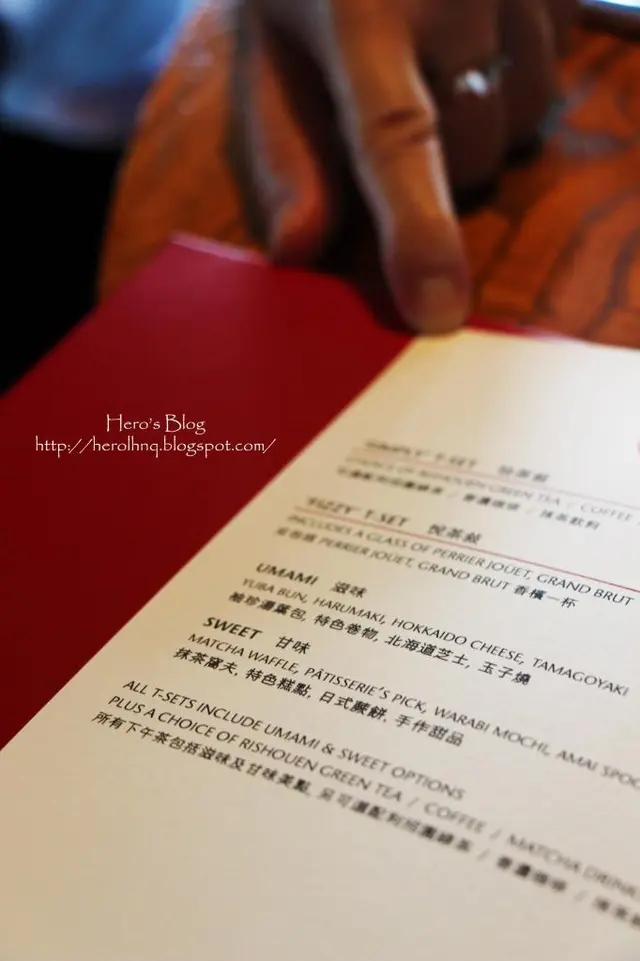 Hero's Blog
http://herolhnq.blogspot.com/
T-SET
GREEN TEA / COFFEE
"FIZZY" T-SET 悅茶敍
INCLUDES A GLASS OF PERRIER JOUET, GRAND BRUT
PERRIER JOUET, GRAND BRUT 香檳一杯
UMAMI 滋味
YUBA BUN, HARUMAKI, HOKKAIDO CHEESE, TAMAGOYAKI
袖珍湯葉包, 特色卷物, 北海道芝士, 玉子燒
SWEET 甘味
MATCHA WAFFLE, PÂTISSERIE'S PICK, WARABI MOCHI, AMAI SPOO
抹茶窩夫, 特色糕點, 日式蕨餅, 手作甜品
ALL T-SETS INCLUDE UMAMI & SWEET OPTIONS
PLUS A CHOICE OF RISHOUEN GREEN TEA / COFFEE / MATCHA DRINK
所有下午茶包括滋味及甘味美點, 另可選配利招園綠茶 / 香濃咖啡 /